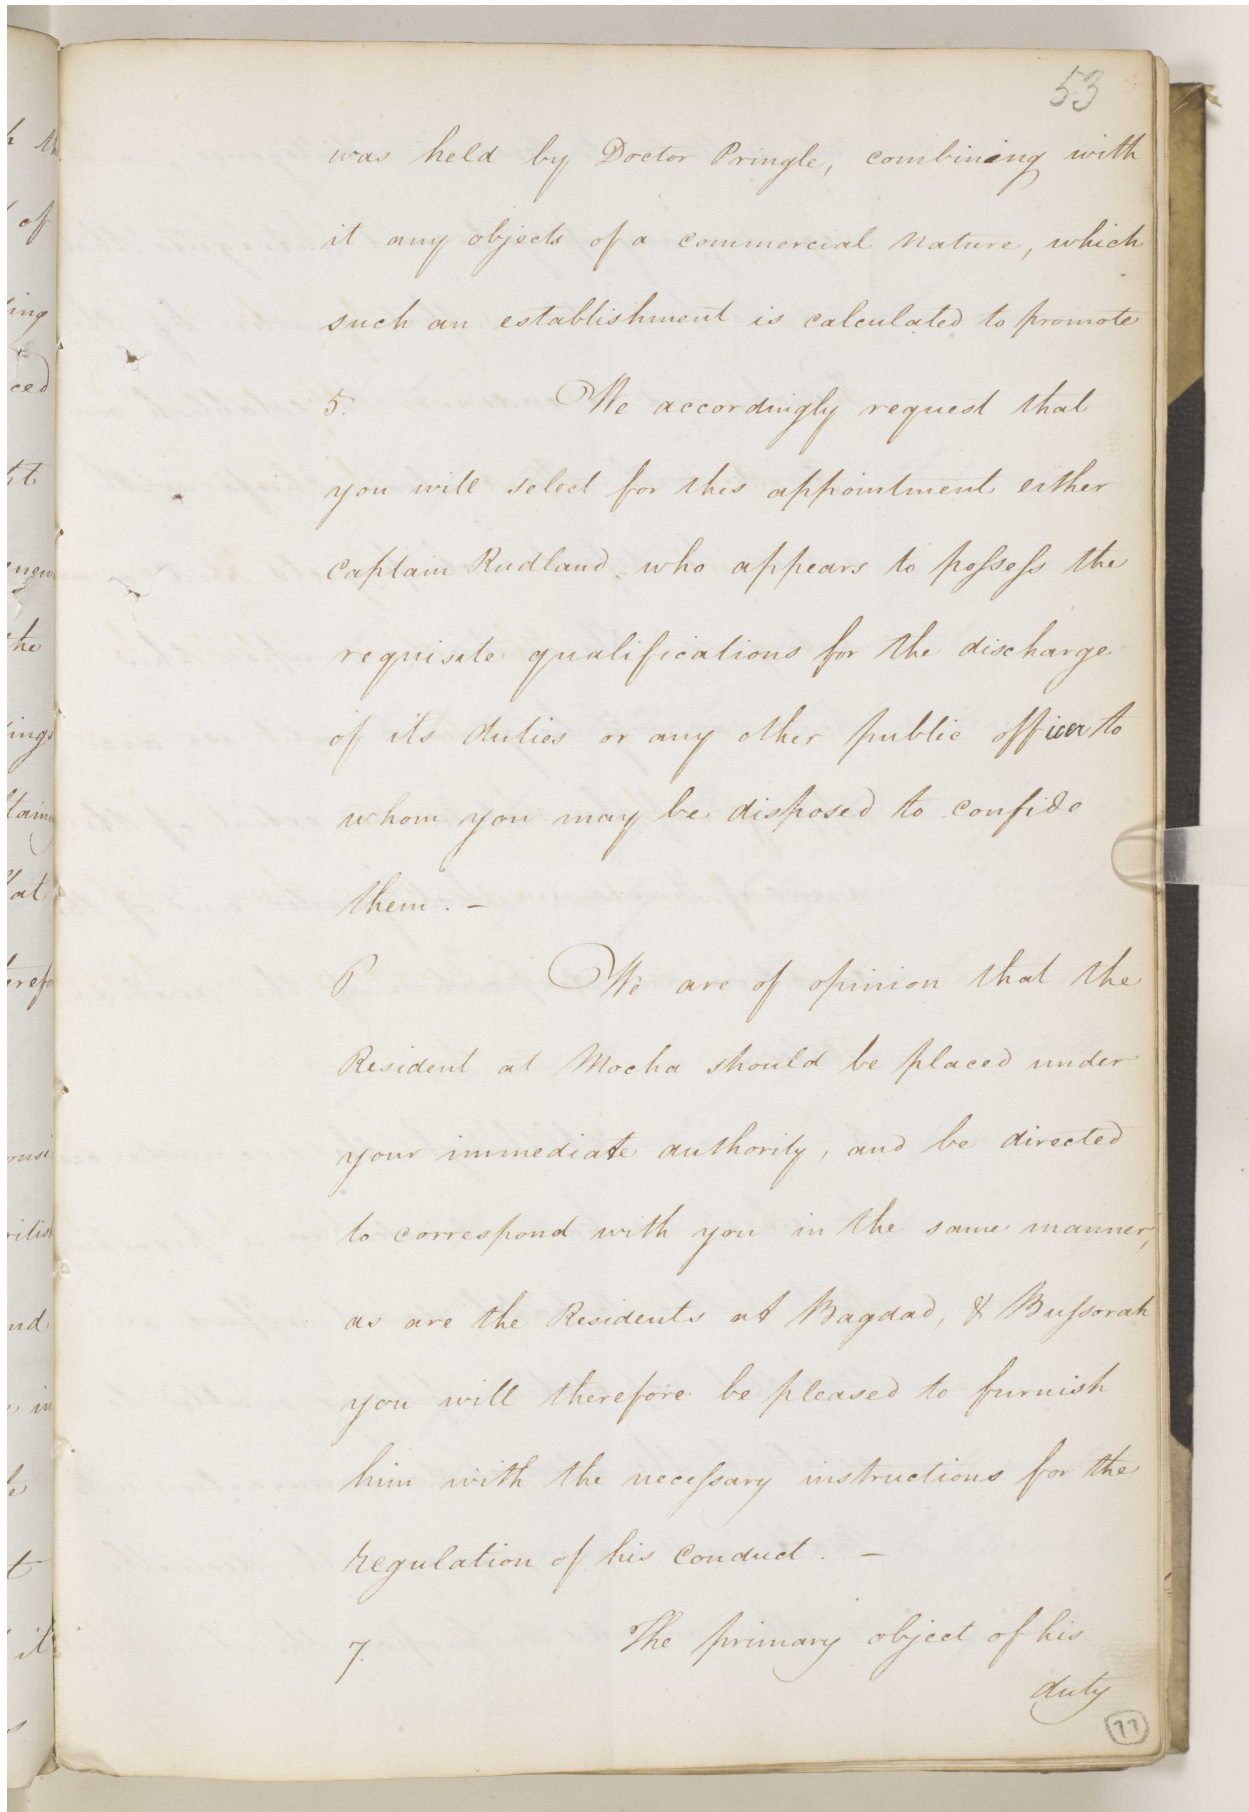 53
was held by Doctor Pringle, combining with
it any objects of a commercial nature, which
such an establishment is calculated to promote
5. We accordingly request that
you will select for this appointment either
Captain Rudland who appears to possess the
requisite qualifications for the discharge
of its duties or any other public officer to
whom you may be disposed to confide
them. —
6 We are of opinion that the
Resident at Mocha should be placed under
your immediate authority, and be directed
to correspond with you in the same manner,
as are the Residents at Bagdad, & Bussorah
you will therefore be pleased to furnish
him with the necessary instructions for the
regulation of his conduct. —
7. The primary object of his
duty
77